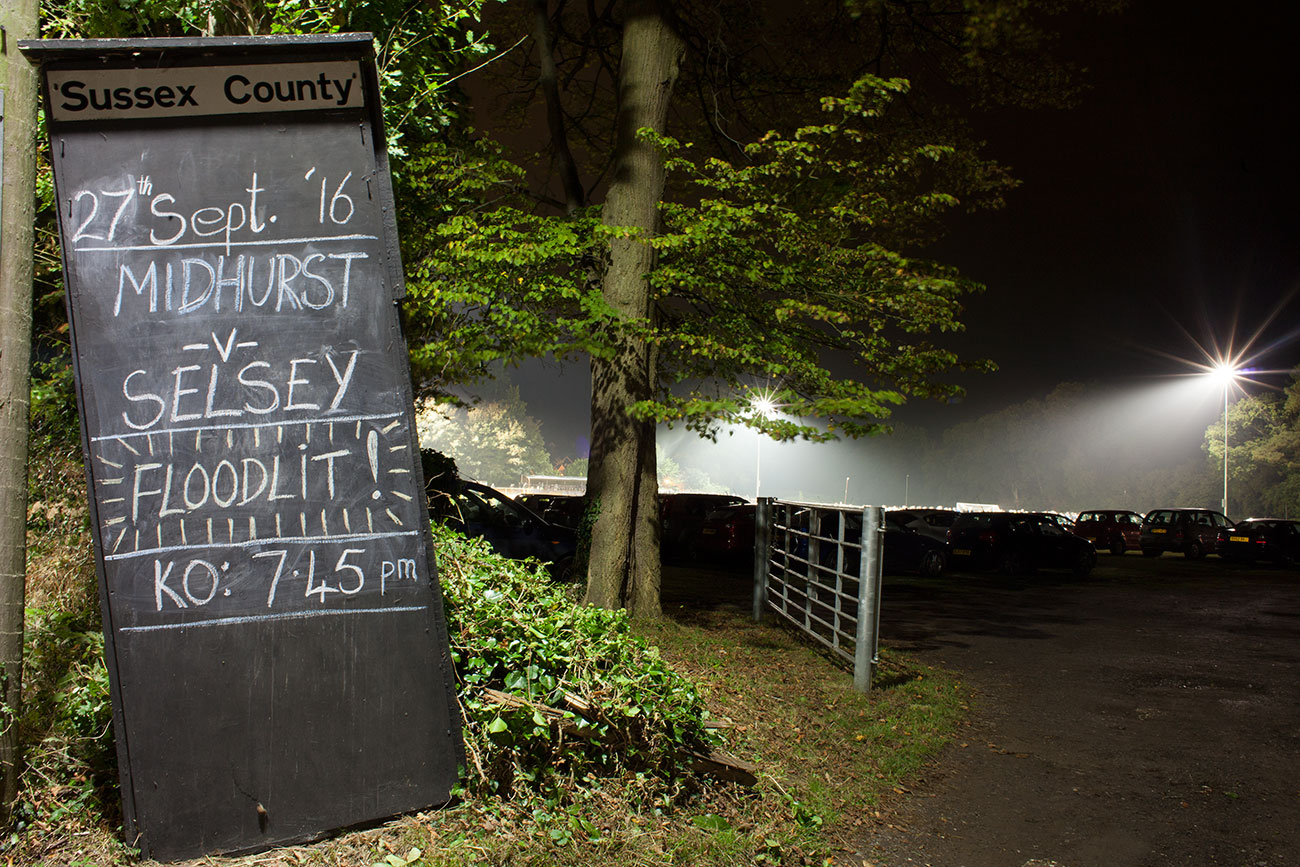 'Sussex County'
27th Sept. '16
MIDHURST
-V-
SELSEY
FLOODLIT!
KO: 7·45 pm